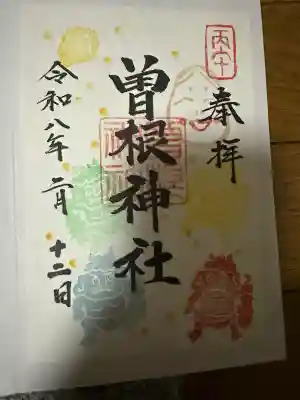 丙午
奉拝
曽根神社
令和八年二月十二日